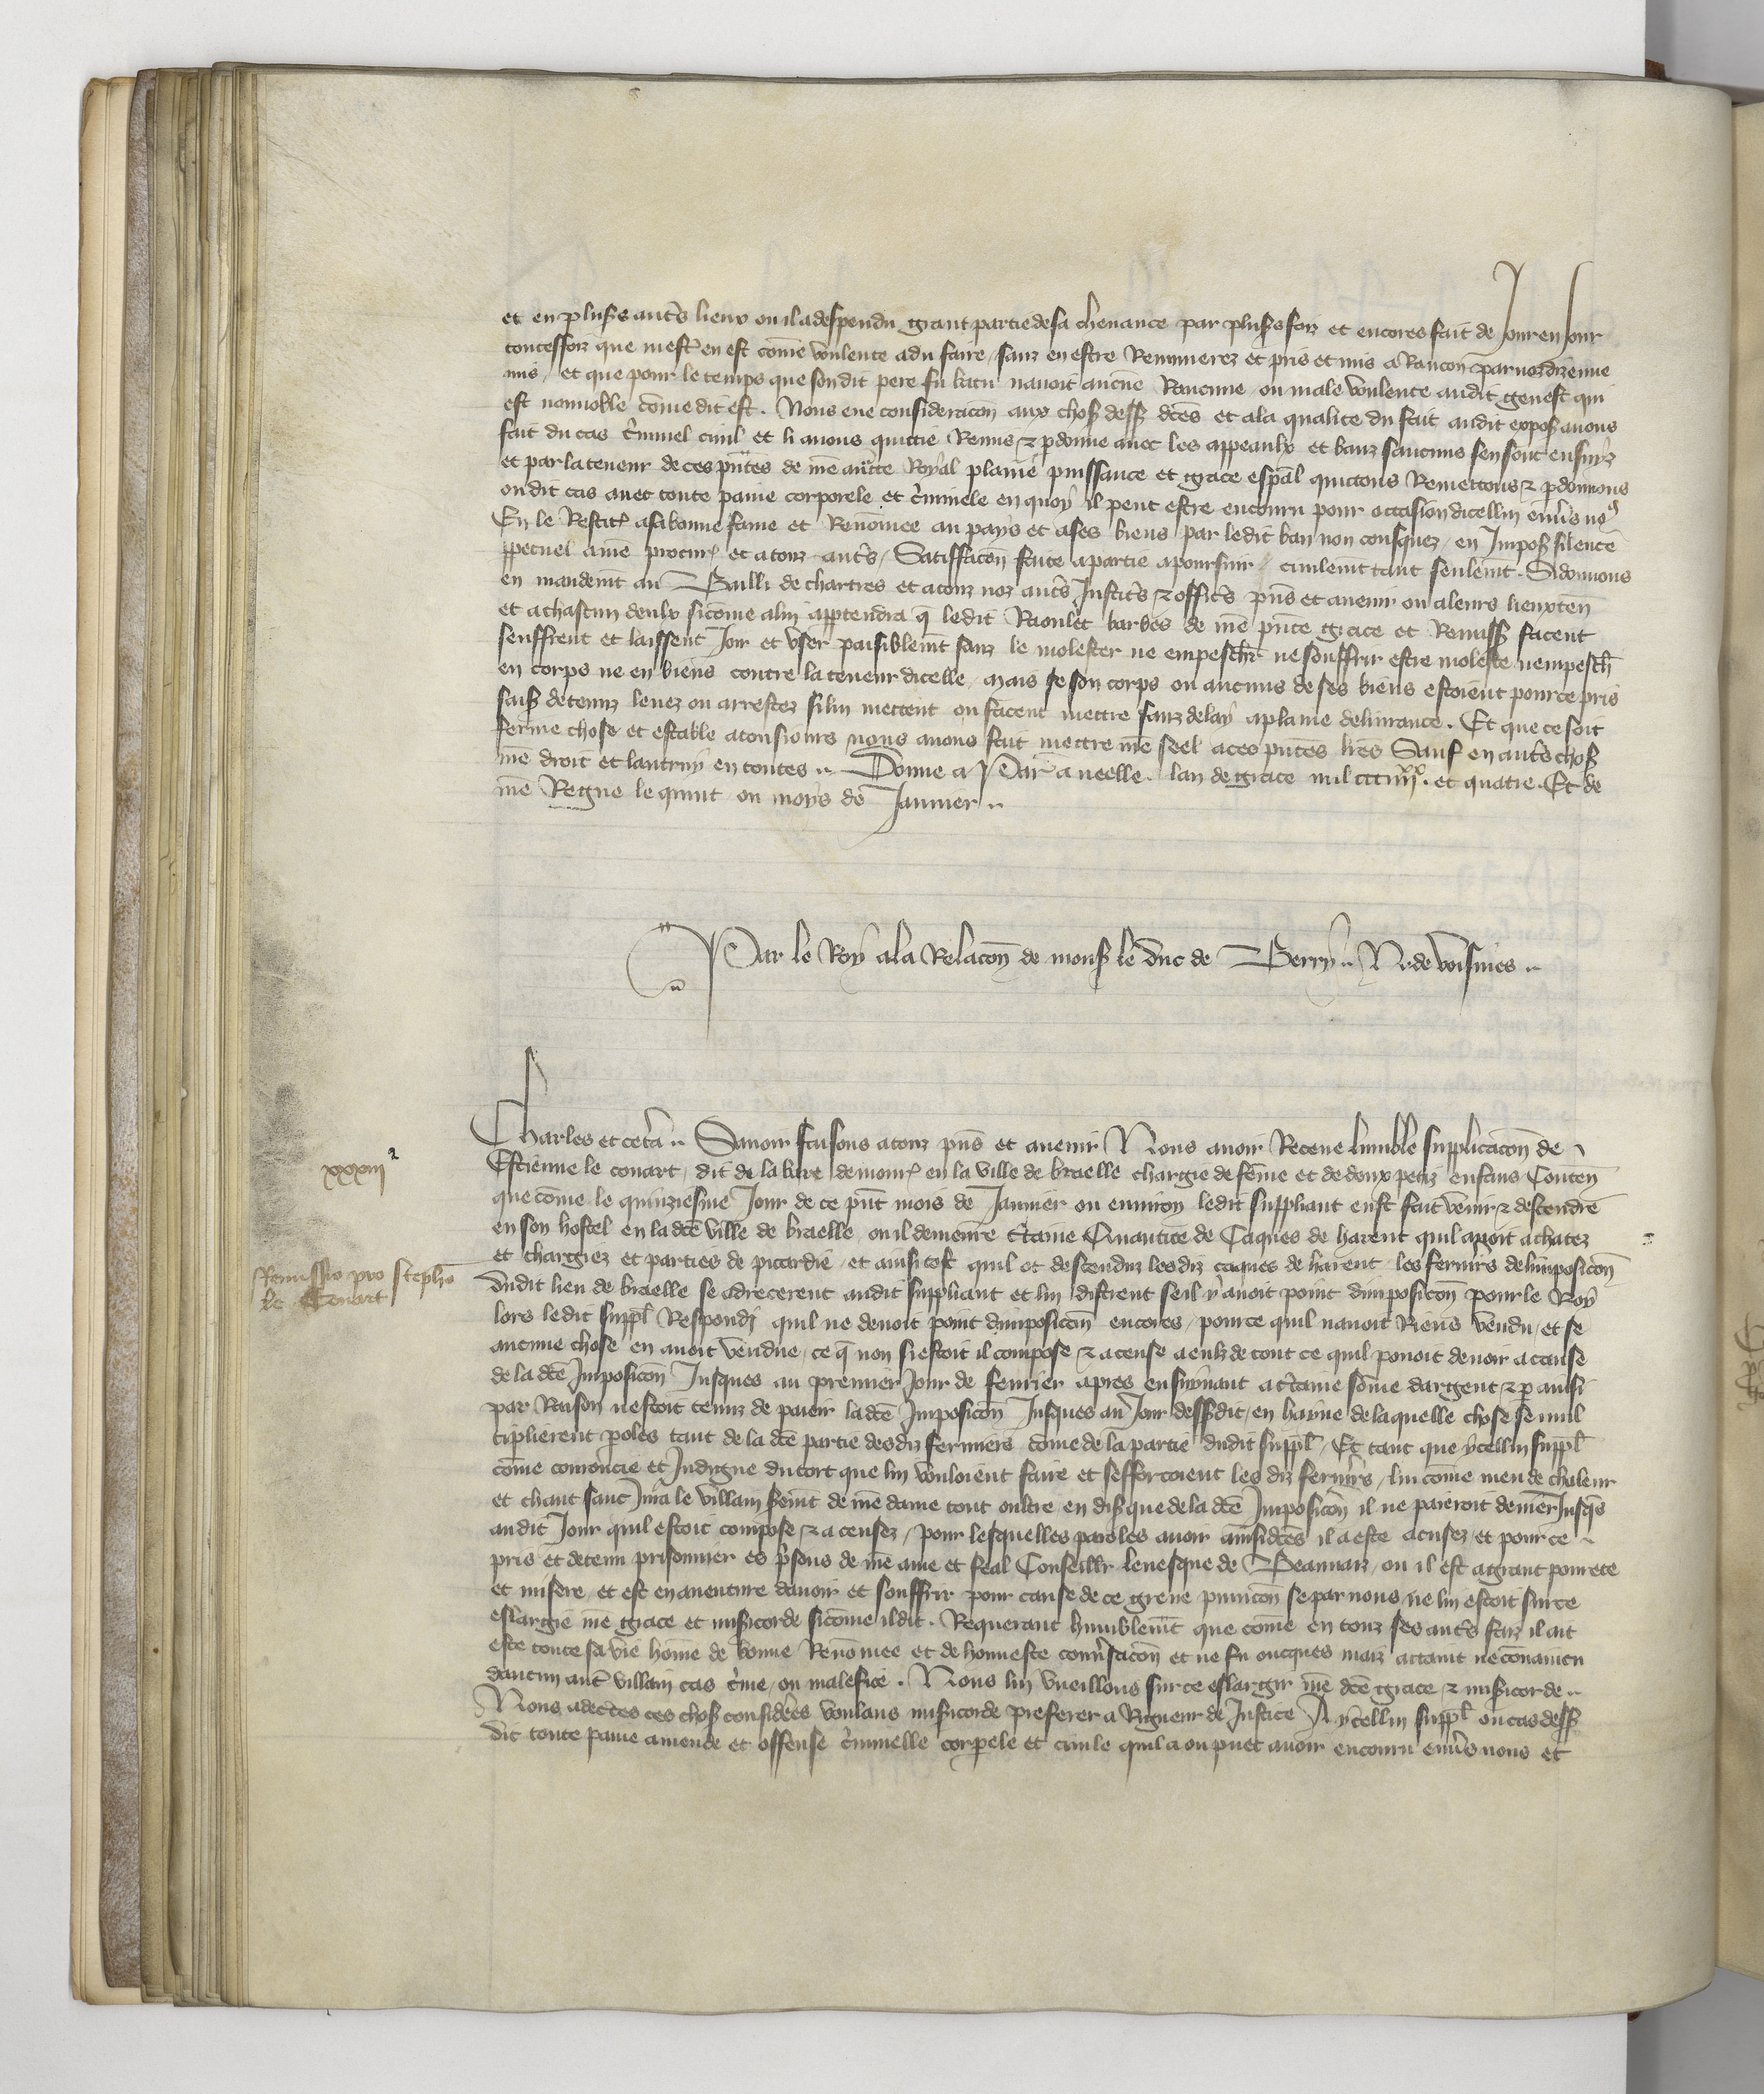 et en plus̃s aut̃s lieux ou il a despendu grant partie de sa chevance par plus̃s foiz et encores fait de Jour en Jour
toutesfoiz que mest̃ en est com̃e voulente a du faire sanz en estre Remunerez et pris et mis a Rancon par noz dizenne
mis / et que pour le temps que son dit pere fu batu navoit aucũe Rancune ou male voulente audit genest qui
est nonnoble com̃e dit est . Nous eue consideracõn aux choses dess̃ dc̃es et a la qualite du fait audit expos̃ avons
fait du cas c̃iminel civil et li avons quittie Remis ⁊ p̃donne avec les appeaulx et bans s aucuns sen sont ensuiz
et par la teneur de ces pñtes de nr̃e auc̃te Royal plaine puissance et grace esp̃al quictons Remettons ⁊ p̃donnons
ou dit cas avec toute paine corporele et c̃iminele en quoy il peut estre encouru pour occasion dicellui enṽs nos
En le Restit̃ a sa bonne fame et Renom̃ee au pays et a ses biens par ledit ban non confisquez / en Impos̃ silence
ppetuel a nr̃e procur̃ et a touz aut̃s / Satiffacõn faite a partie a poursuir / civilem̃t tant seulem̃t . Si donnons
en mandem̃t au Bailli de chartres et a touz noz aut̃s Justic̃s ⁊ offic̃s pñs et avenir ou a leurs lieuxteñ
et a chascun deulx sicom̃e a lui app̃tendra q̃ ledit Raoulet barbes de nr̃e pñte grace et Remiss̃ facent
seuffrent et laissent Joir et user paisiblem̃t sanz le molester ne empescher ne souffrir estre moleste nempesch̃
en corps ne en biens contre la teneur dicelle / mais se son corps ou aucuns de ses biens estoient pour ce pris
sais̃ detenuz levez ou arrestez si lui mettent ou facent mettre sanz delay a plaine delivrance . Et que ce soit
ferme chose et estable a tousiours nous avons fait mettre nr̃e seel a ces pñtes lr̃es Sauf en aut̃s chos̃
nr̃e droit et lautruy en toutes .. Donne a Par a neelle . lan de grace mil ccciiii xx . et quatre . Et de
nr̃e Regne le quint ou moys de Janvier ..
Par le Roy a la Relacõn de mons̃ le duc de Berry .. N. de voisines ..
Charles et cetã .. Savoir faisons a touz pñs et avenir Nous avoir Receue lumble supplicacõn de
xxxiii
Estienne le couart / dit de la bare demour̃ en la ville de braelle chargie de fem̃e et de deux petiz enfans Conteñ
que com̃e le quinziesme Jour de ce pñt mois de Janvier ou environ ledit suppliant eust fait venir ⁊ descendre
en son hostel en la dc̃e ville de braelle ou il demeure c̃taine Quantite de Caques de harent quil avoit achatez
et chargiez et parties de picardie / et ainsi tost quil ot descenduz lesdiz caques de harent les fermiers de limposicõn
Remissio pro Stephõ
le Couart
dudit lieu de braelle se adrecerent audit suppliant et lui distrent seil y avoit point dimposicõn pour le Roy
lors ledit suppl̃ Respondi quil ne devoit point dimposicõn encores / pour ce quil navoit Riens vendu / et se
aucune chose en avoit vendue / ce q̃ non si estoit il compose ⁊ acense a eulz de tout ce quil povoit devoir a cause
de la dc̃e Imposicõn Jusques au premier Jour de fevrier apres ensuivant a c̃taine som̃e dargent ⁊ p̃ ainsi
par Raison nestoit tenuz de paier ladc̃e Imposicõn Jusques au Jour dessdit / en hayne de laquelle chose se mul
tiplierent p̃oles tant de la dc̃e partie desdiz fermiers com̃e de la partie dudit suppl̃ / Et tant que ycellui suppl̃
com̃e comoncie et Indigne du tort que lui vouloient faire et sefforcoient les diz fermiers / lui com̃e meu de chaleur
et chaut sanc Jura le villain serm̃t de nr̃e dame tout oultre en dis̃ que de la dc̃e Imposicõn il ne paieroit denier Jusq̃s
audit Jour quil estoit compose ⁊ acensez / pour lesquelles paroles avoir ainsi dc̃es il a este acusez / et pour ce
pris et detenu prisonnier es p̃sons de nr̃e ame et feal Conseiller levesque de Beauvaiz / ou il est a grant povrete
et misere / et est en aventure davoir et souffrir pour cause de ce greve punicõn se par nous ne lui estoit sur ce
eslargie nr̃e grace et mis̃icorde sicom̃e il dit . Requerant humblem̃t que com̃e en touz ses aut̃s faiz il ait
este toute sa vie hom̃e de bonne Renom̃ee et de honneste conṽsacõn et ne fu oncques maiz attaint ne convaincu
daucun aut̃ villain cas c̃ime / ou malefice . Nous lui vueillons sur ce eslargir nr̃e dc̃e grace ⁊ mis̃icorde ..
Nous adec̃tes ces chos̃ considerẽs voulans mis̃icorde preferer a Rigueur de Justice A ycellui suppl̃ ou cas dess̃
dit toute paine amende et offense c̃iminelle corp̃ele et civile quil a ou puet avoir encouru enṽs nous et